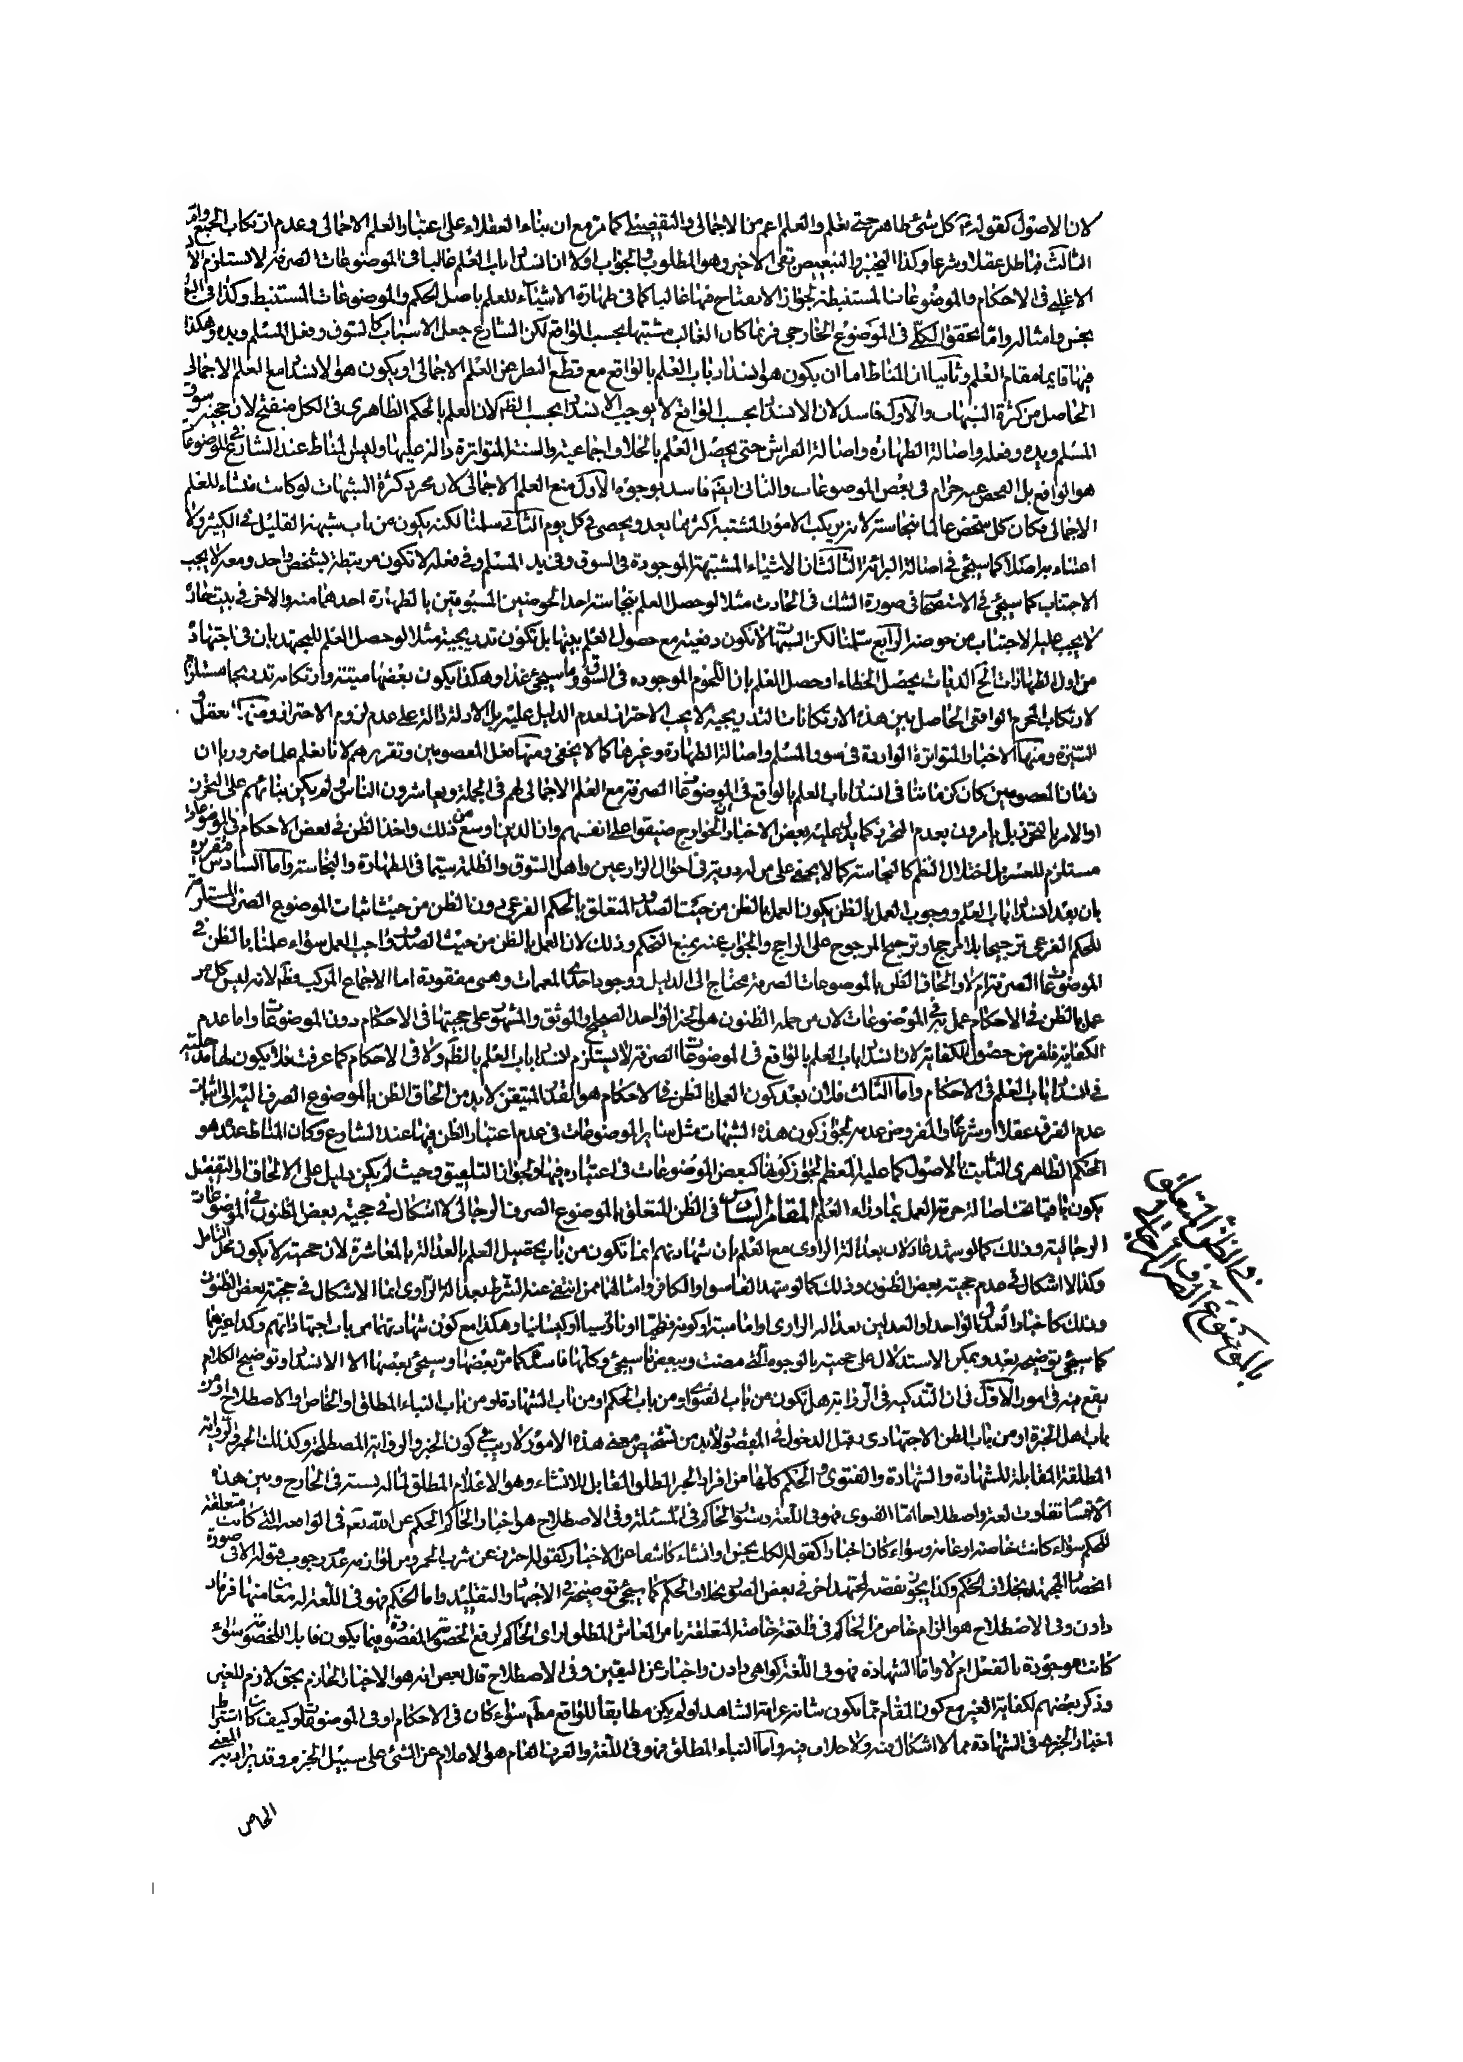 لان الاصول كقوله كل شئ طاهر حتى تعلم والعلم اعم من الاجمالى والتفصيلى كما مر مع ان بناء العقلاء على اعتبار العلم الاجمالى وعدم ارتكاب الجميع واما
الثالث فباطل عقلا وشرعا وكذا التخيير والتبعيض بقى الاخير وهو المطلوب والجواب اولا ان انسداد باب العلم غالبا فى الموضوعات الصرفة لا يستلزم
الاغلب فى الاحكام والموضوعات المستنبطة لجواز الانفتاح فيها غالبا كما فى طهارة الاشياء للعلم باصل الحكم والموضوعات المستنبط وكذا فى
بجس وامثاله واما تحقق الكلى فى الموضوع الخارجى فربما كان الغالب مشتبها بحسب الواقع لكن الشارع جعل الاسباب كالسوق وفعل المسلم ويده وهكذا
فيها قايما مقام العلم وثانيا ان المناط اما ان يكون هو انسداد باب العلم بالواقع مع قطع النظر عن العلم الاجمالى او يكون هو الانسداد مع العلم الاجمالى
الحاصل من كثرة الشبهات والاول فاسد لان الانسداد بحسب الواقع لا يوجب الانسداد بحسب الظ لان العلم بالحكم الظاهرى فى الكل منفتح لان حجية سوق
المسلم ويده وفعله واصالة الطهارة واصالة الفراش حتى يحصل العلم بالخلاف اجماعية والسنة المتواترة دالة عليها وليس المناط عند الشارع فى الموضوعات
هو الواقع بل الفحص عنه حرام فى بعض الموضوعات والثانى ايضا فاسد بوجوه الاول منع العلم الاجمالى لان مجرد كثرة الشبهات لو كانت منشاء للعلم
الاجمالى لكان كل شخص عالما بنجاسة لانه يرتكب الامور المشتبه اكثر مما يعد ويحصى فى كل يوم الثانى سلمنا لكنه يكون من باب شبهة القليل فى الكثير ولا
اعتناء به اصلا كما سيجئ فى اصالة البرائة الثالث ان الاشياء المشتبهة الموجودة فى السوق وفى يد المسلم وفى فعله لا تكون مرتبطة بشخص واحد ومعه لا يجب
الاجتناب كما سيجئ فى الاستصحاب فى صورة الشك فى الحادث مثلا لو حصل العلم بنجاسة احد الحوضين المسبوقين بالطهارة احدهما منه والاخر فى بيت جاره
لا يجب عليه الاجتناب من حوضه الرابع سلمنا لكن الشبهة لا تكون دفعية مع حصول العلم بينها بل تكون تدريجية مثلا لو حصل العلم للمجتهد بان فى اجتهاده
من اول الطهارات الى الديات يحصل الخطاء او حصل العلم بان اللحوم الموجوده فى السوق وما سيجئ غدا وهكذا يكون بعضها ميتة وارتكابه تدريجا مستلزما
لارتكاب المحرم الواقعى الحاصل بين هذه الارتكابات التدريجية لا يجب الاحتراز لعدم الدليل عليه بل الادلة دالة على عدم لزوم الاحتراز
السيرة ومنها الاخبار المتواترة الواردة فى سوق المسلم واصالة الطهارة وغيرها كما لا يخفى ومنها فعل المعصومين وتقريرهم لانا نعلم علما ضروريا ان
زمان المعصومين كان كزماننا فى انسداد باب العلم بالواقع فى الموضوعات الصرفة مع العلم الاجمالى لهم فى الجملة ويعاشرون الناس ولم يكن بنائهم على التحرز
او الامر بالتحرز بل يامرون بعدم التحرز كما يدل عليه بعض الاخبار ان الخوارج ضيقوا على انفسهم وان الدين اوسع من ذلك واخذ الظن فى بعض الاحكام
مستلزم للعسر بل اختلال النظم كالنجاسة كما لا يخفى على من له دربة فى احوال الزارعين واهل السوق والظلمة سيما فى الطهارة والنجاسة واما السادس فتقريره
بان بعد انسداد باب العلم ووجوب العمل بالظن يكون العمل بالظن من حيث الصدور المتعلق بالحكم الفرعى دون الظن من حيث اثبات الموضوع الصرف المستلزم
للحكم الفرعى ترجيحا بلا مرجح او ترجيح المرجوح على الراجح والجواب عنه بمنع التحكم وذلك لان العمل بالظن من حيث الصدور واجب العمل سواء علمنا بالظن فى
الموضوعات الصرفة ام لا والحاق الظن بالموضوعات الصرفة محتاج الى الدليل ووجود احدى المعممات وهى مفقودة اما الاجماع المركب فظ لانه ليس كل من
عمل بالظن فى الاحكام عمل به فى الموضوعات لان من جملة الظنون هو الخبر الواحد الصحيح والموثق والمشهور على حجيتها فى الاحكام دون الموضوعات واما عدم
الكفاية فلفرض حصول الكفاية لان انسداد باب العلم بالواقع فى الموضوعات الصرفة لا يستلزم انسداد باب العلم بالظ ولا فى الاحكام كما عرفت فلا يكون لها مدخلية
فى انسداد باب العلم فى الاحكام واما الثالث فلان بعد كون العمل بالظن فى الاحكام هو القدر المتيقن لا بد من الحاق الظن بالموضوع الصرف اليه الى اثبات
عدم الفرق عقلا او شرعا والمفروض عدمه لجواز كون هذه الشبهات مثل ساير الموضوعات فى عدم اعتبار الظن فيها عند الشارع وكان المناط عنده هو
الحكم الظاهرى الثابت بالاصول كما عليه المعظم لجواز كونها كبعض الموضوعات فى اعتباره فيها ولجواز التبعيض وحيث لم يكن دليل على الالحاق او التفصيل
يكون باقيا تحت اصالة حرمة العمل بما وراء العلم المقام السادس فى الظن المتعلق بالموضوع الصرف الرجالى لا اشكال فى حجية بعض الظنون فى الموضوعات
الرجالية وذلك كما لو شهد عادلان بعدالة الراوى مع العلم بان شهادتهم انما تكون من باب تحصيل العلم بالعدالة بالمعاشرة لان حجيته لا يكون محل التامل
وكذا لا اشكال فى عدم حجية بعض الظنون وذلك كما لو شهد الفاسق او الكافر وامثالهما ممن انتفى عنه الشرط بعدالة الراوى انما الاشكال فى حجية بعض الظنون
وذلك كاخبار العدل الواحد او العدلين بعدالة الراوى او امامية او كونه فطحيا او ناووسيا او كيسانيا وهكذا مع كون شهادتهما من باب اجتهاداتهم وكذا غيرهما
كما سيجئ توضيحه بعد ويمكن الاستدلال على حجيته بالوجوه التى مضت وببعض ما سيجئ وكلها فاسدة كما مر بعضها وسيجئ بعضها الا الانسداد وتوضيح الكلام
يقع فيه فى امور الاول فى ان التزكية فى الرواية هل تكون من باب الفتوى او من باب الحكم او من باب الشهادة او من باب النباء المطلق او الخاص او الاصطلاح او من
باب اهل الخبرة او من باب الظن الاجتهادى وقبل الدخول فى المقصود لا بد من تشخيص معنى هذه الامور لا ريب فى كون الخبر والرواية المصطلحة وكذلك الخبر والرواية
المطلقة المقابلة للشهادة والشهادة والفتوى والحكم كلها من افراد الخبر المطلق المقابل للانشاء وهو الاعلام المطلق لما له نسبة فى الخارج وبين هذه
الاقسام تفاوت لغة واصطلاحا اما الفتوى فهو فى اللغة دستور الحاكم فى المسئلة وفى الاصطلاح هو اخبار الحاكم الحكم عن الله تعالى فى الواقعة التى كانت متعلقة
للحكم سواء كانت خاصة او عامة وسواء كان اخبارا كقوله الكلب نجس او انشاء كاشفا عن الاخبار كقوله احترز عن شرب الخمر ومن لوازمه عدم وجوب قبوله الا فى صورة
انحصار المجتهد بخلاف الحكم وكذا يجوز نقضه لمجتهد اخر فى بعض الصور بخلاف الحكم كما سيجئ توضيحه فى الاجتهاد والتقليد واما الحكم فهو فى اللغة له معان منها فرمان
دادن وفى الاصطلاح هو الزام خاص من الحاكم فى واقعة خاصة المتعلقة بامر المعاش المطلق لراى الحاكم لرفع الخصومة المقصودة فيما يكون قابلا للخصومة سواء
كانت موجودة بالفعل ام لا واما الشهادة فهو فى اللغة كواهى دادن واخبار عن اليقين وفى الاصطلاح قال بعض انه هو الاخبار الجازم بحق لازم للغير
وذكر بعضهم لكفاية الغير مع كون المقام مما يكون شانه عرامة الشاهد لو لم يكن مطابقا للواقع مط سواء كان فى الاحكام او فى الموضوعات وكيف كان اشتراط
اخبار الجزم فى الشهادة مما لا اشكال فيه ولا خلاف فيه واما النباء المطلق فهو فى اللغة والعرف العام هو الاعلام عن الشئ على سبيل الجزم وقد يراد به المعنى
الخاص
فى الظن المتعلق
بالموضوع الصرف الرجالى